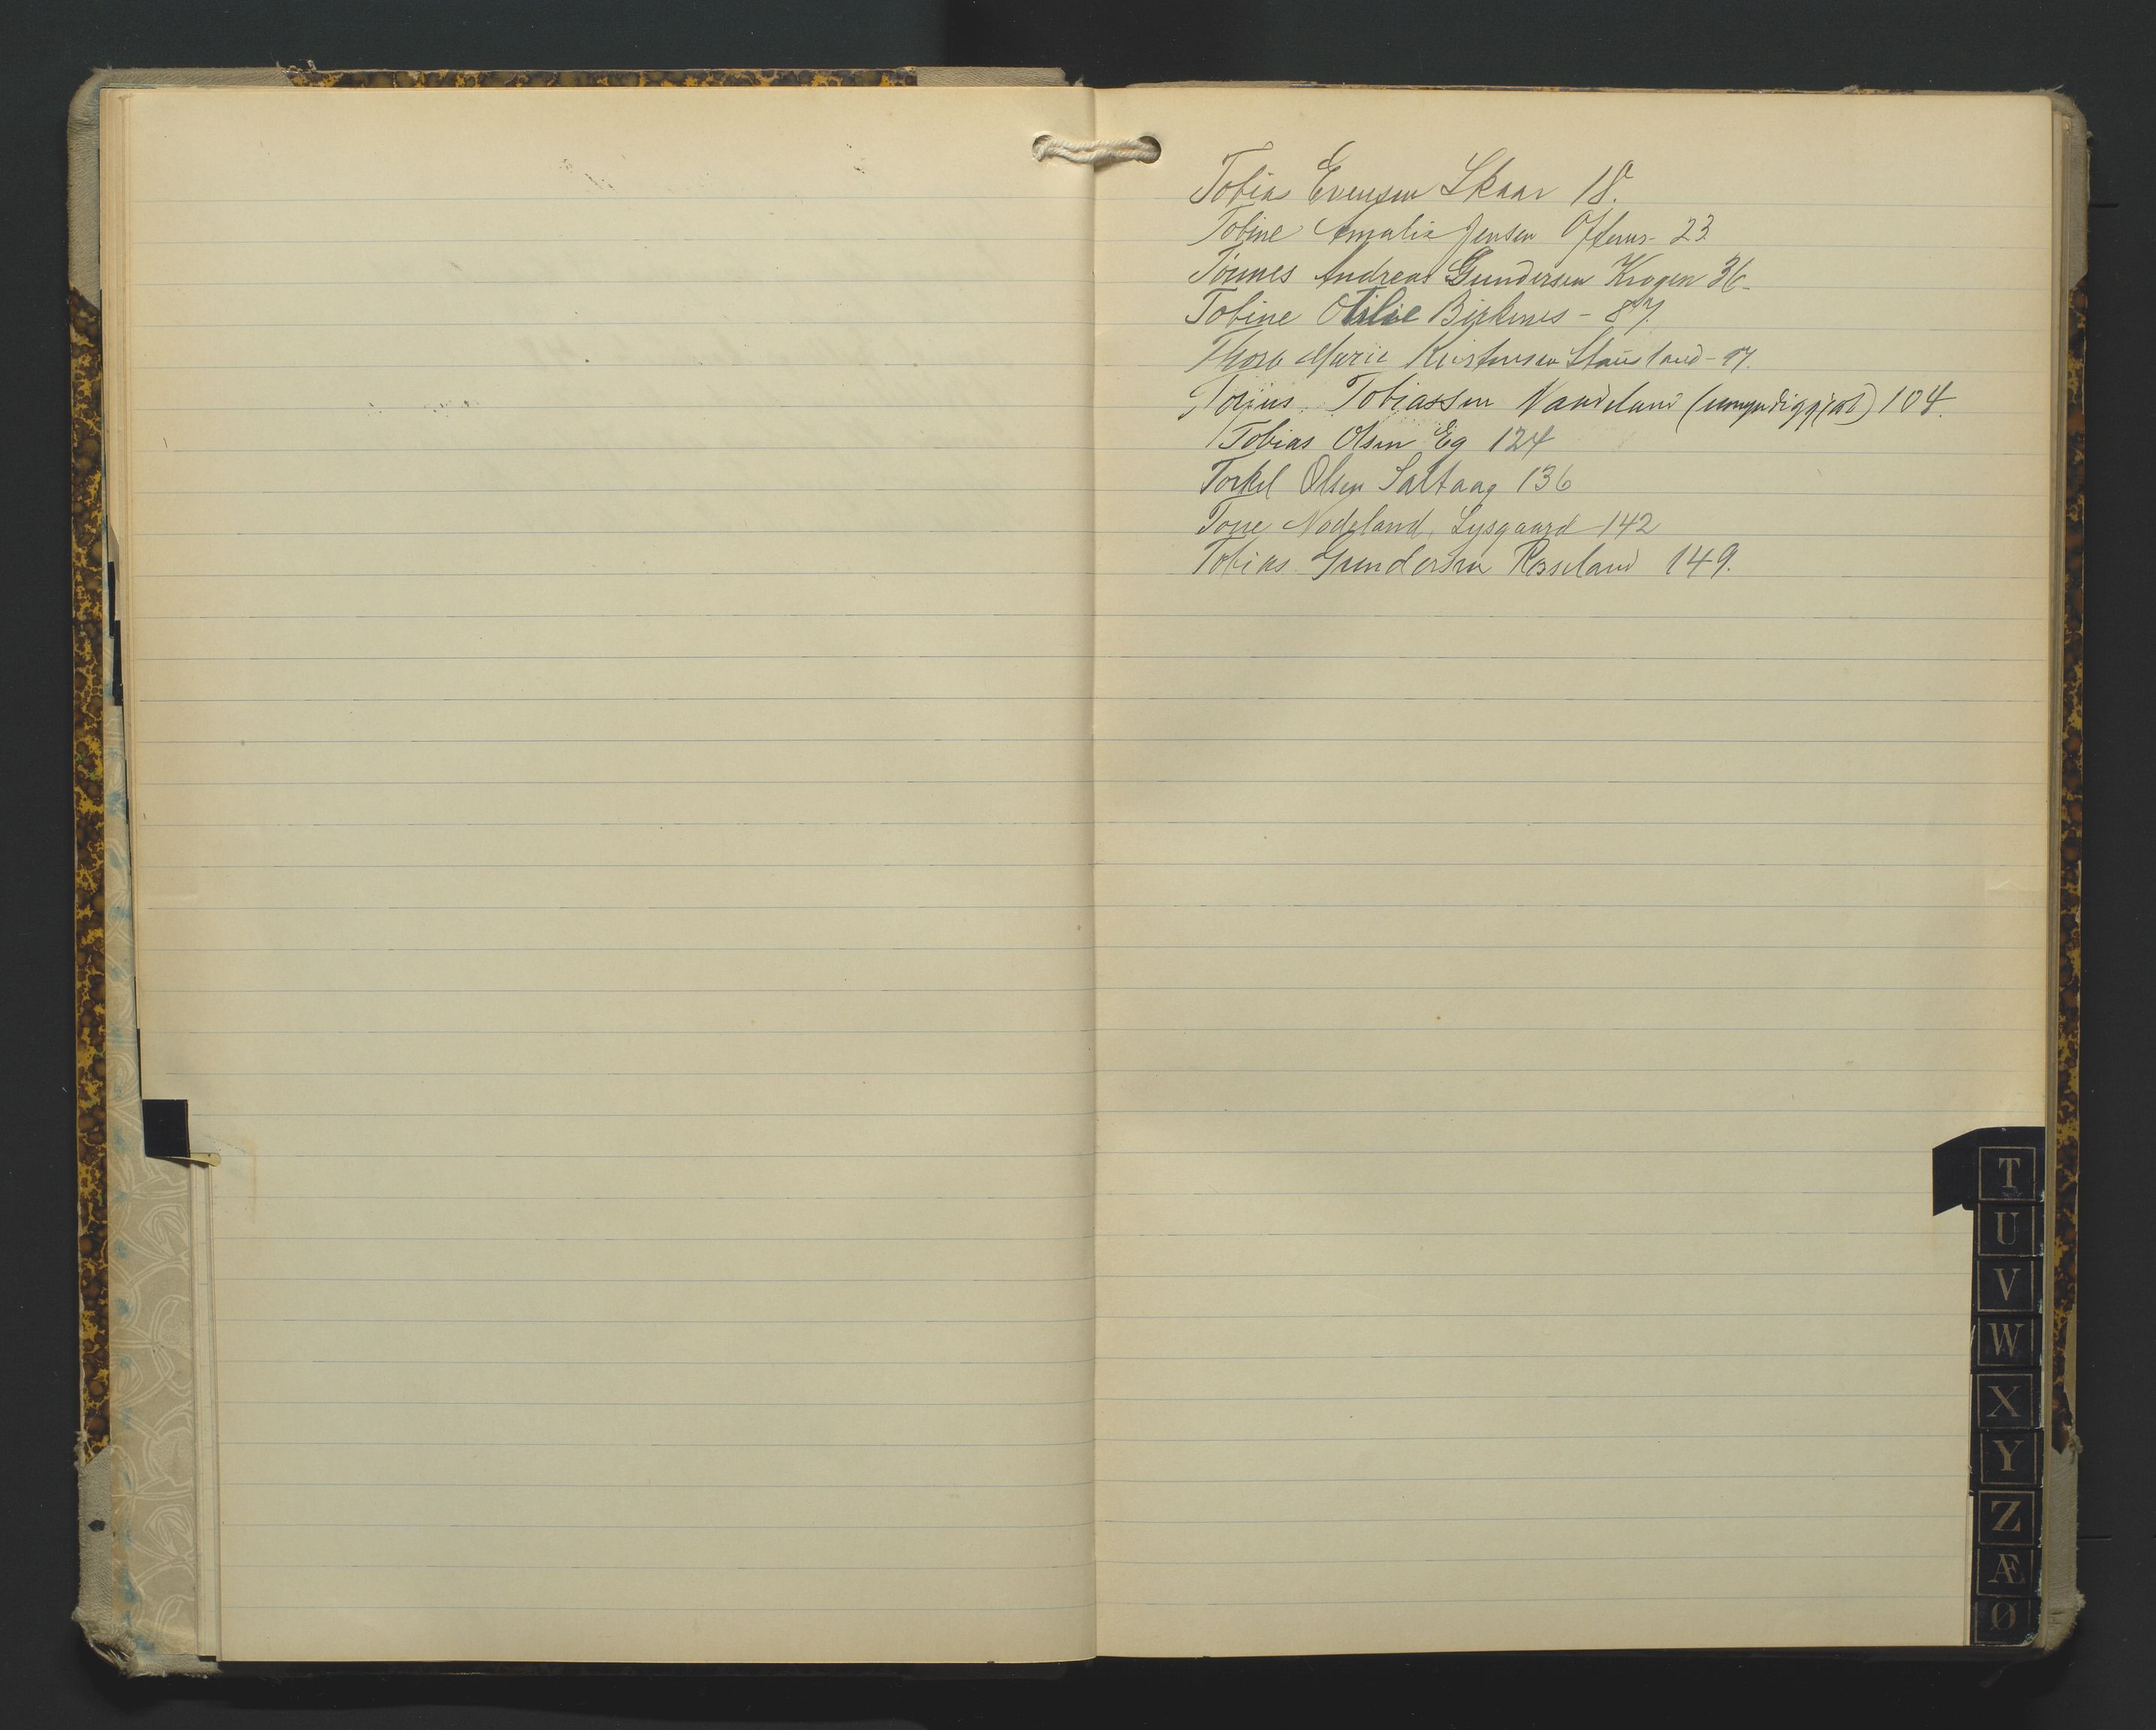 Tobias Evensen Skaar 18.
Tobine Amalie Jensen 23
Tönnes Andreas Gundersen Krogen 36-
Tobine Otilie Birkenes - 87.
Thora Marie Kristensen Stausland - 97.
Torjus Tobiassen Vandeland (umyndiggjort) 104.
Tobias Olsen Eg 124
Torkel Olsen 136
Tone Nodeland, Lysgaard 142
Tobias Gundersen Rosseland 149.
T
U
V
W
X
Y
Z
Æ
Ø